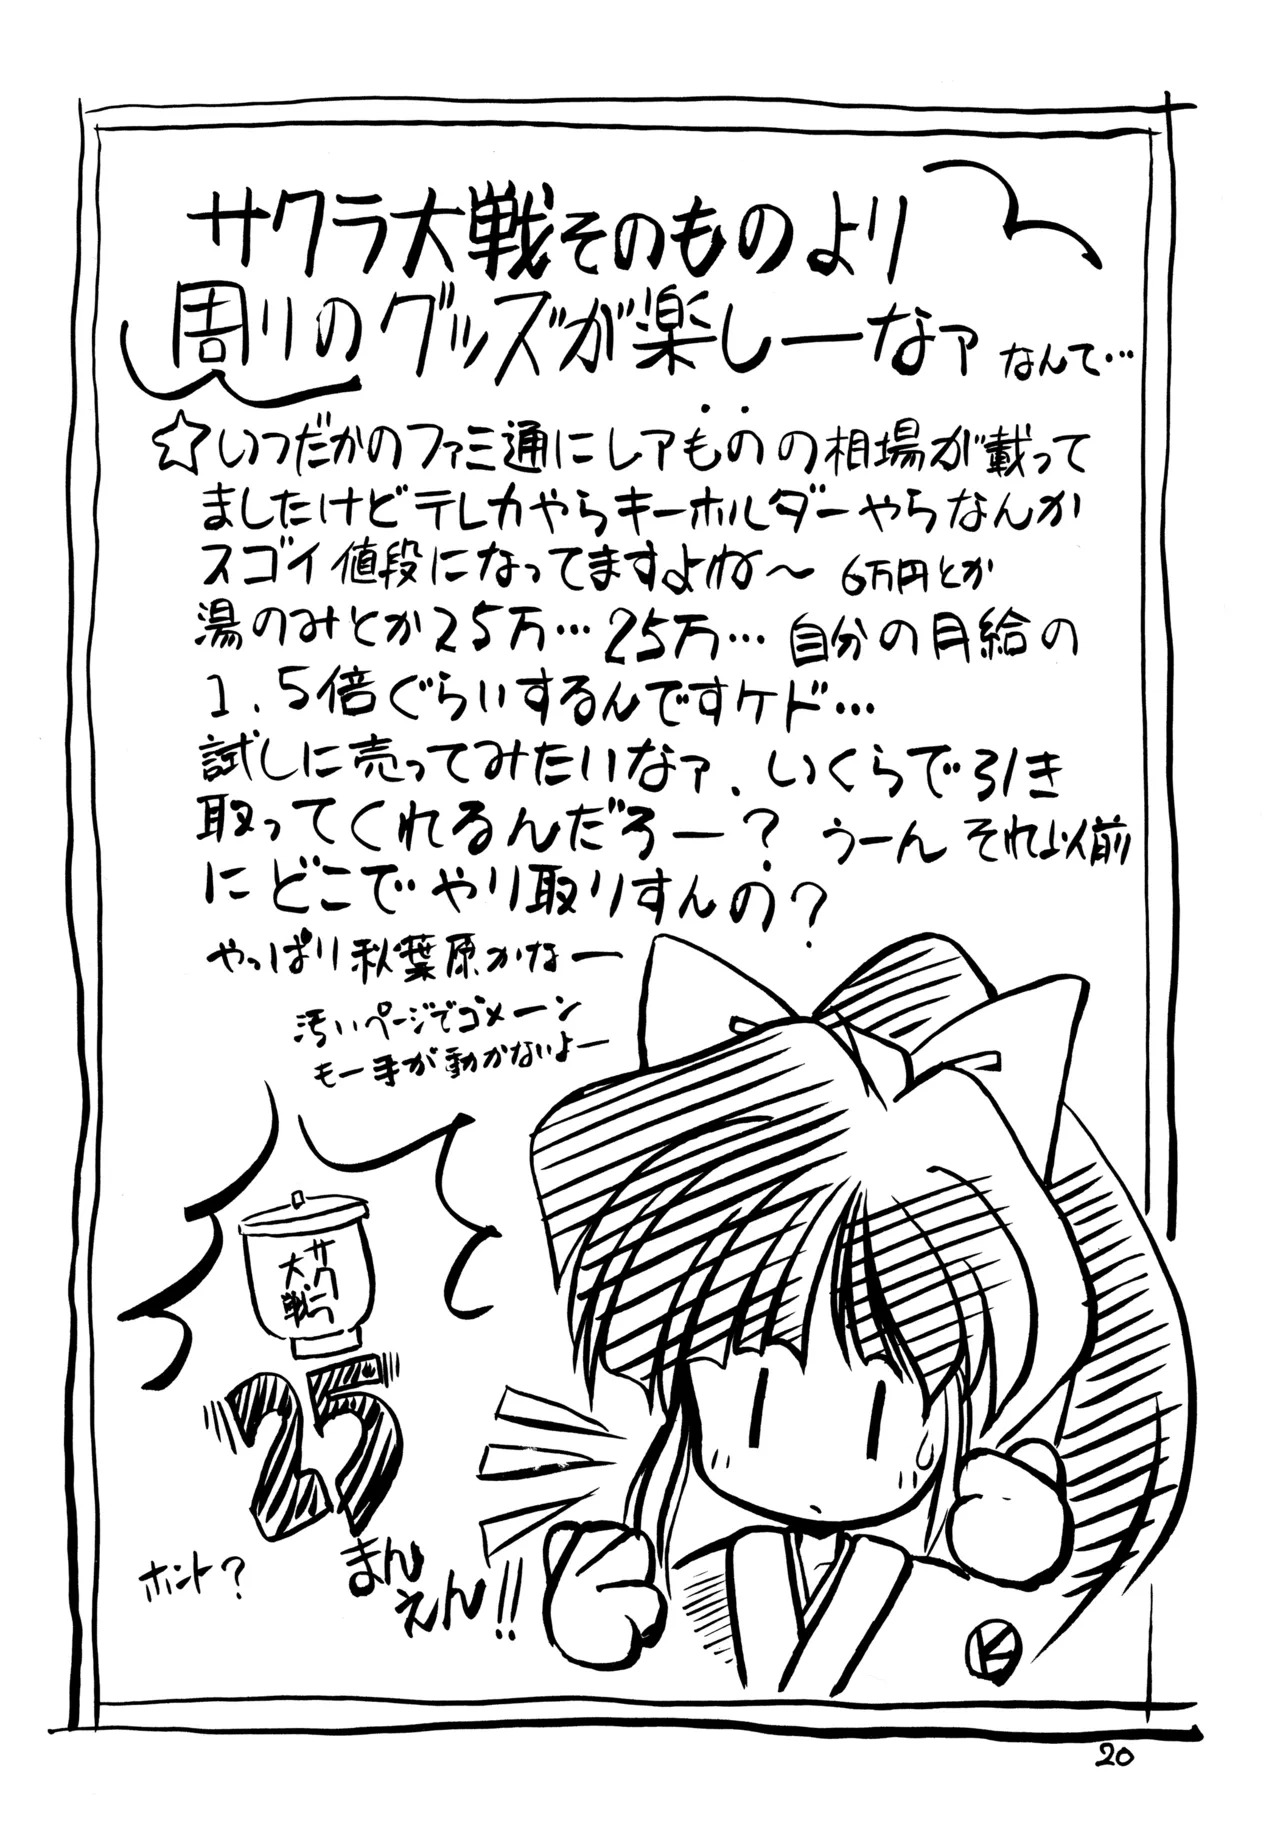 サクラ大戦そのものより
周りのグッズが楽しーなァ なんて…
☆いつだかのファミ通にレアものの相場が載って
ましたけどテレカやらキーホルダーやらなんか
スゴイ値段になってますよね〜 6万円とか
湯のみとか25万…25万… 自分の月給の
1.5倍ぐらいするんですケド…
試しに売ってみたいなァ. いくらで引き
取ってくれるんだろー? うーん それ以前
にどこでやり取りすんの?
やっぱり秋葉原かなー
汚いページでゴメーン
もー手が動かないよー
サクラ
大戦
25
まん
えん!!
ホント?
K
20